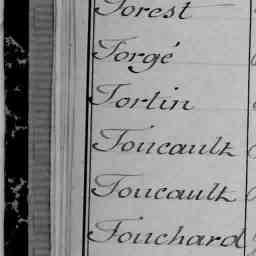 Forest
Forgé
Fortin
Foucault
Foucault
Fouchard